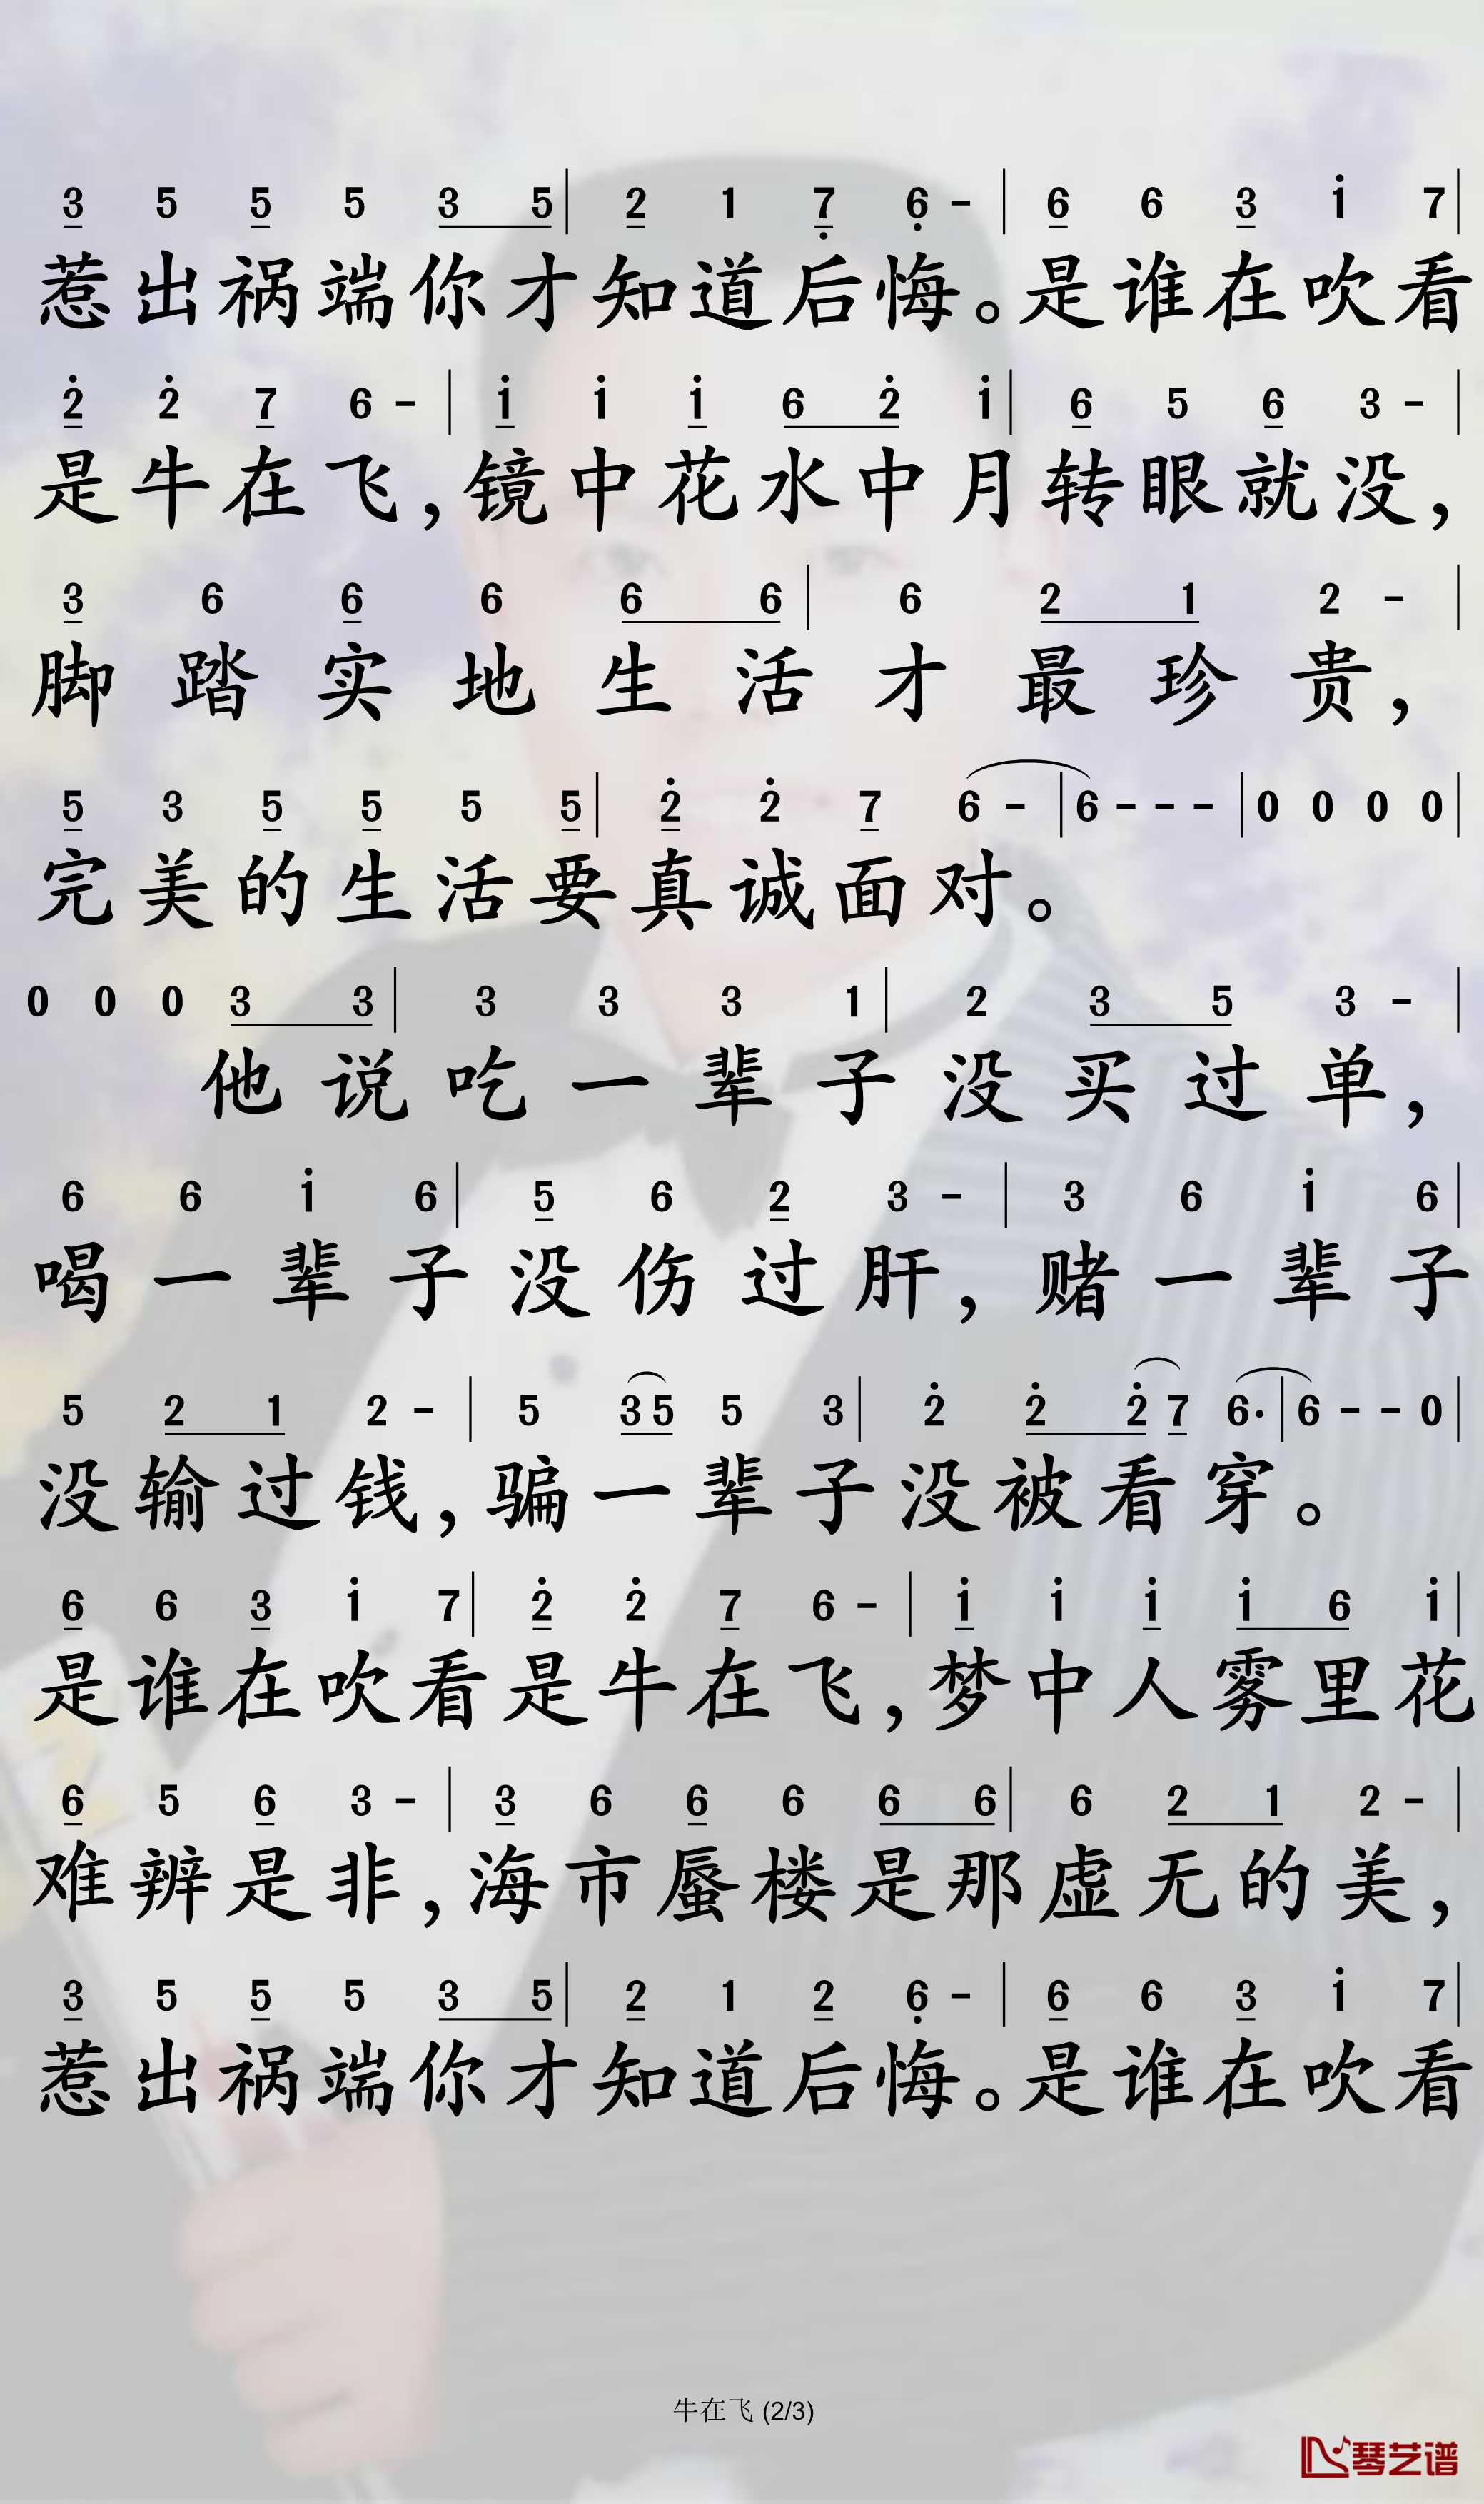 3 5 5 5 3 5| 2 1 7̣ 6̣ - | 6 6 3 1̇ 7|
惹出祸端你才知道后悔。是谁在吹看
2̇ 2̇ 7 6 - | 1̇ 1̇ 1̇ 6 2̇ 1̇| 6 5 6 3 - |
是牛在飞,镜中花水中月转眼就没,
3 6 6 6 6 6| 6 2 1 2 - |
脚踏实地生活才最珍贵,
5 3 5 5 5 5| 2̇ 2̇ 7 6 - |6 - - - |0 0 0 0|
完美的生活要真诚面对。
0 0 0 3 3| 3 3 3 1| 2 3 5 3 - |
他说吃一辈子没买过单,
6 6 1̇ 6| 5 6 2 3 - | 3 6 1̇ 6|
喝一辈子没伤过肝,赌一辈子
5 2 1 2 - | 5 3 5 5 3| 2̇ 2̇ 2̇ 7 6·|6 - - 0|
没输过钱,骗一辈子没被看穿。
6 6 3 1̇ 7| 2̇ 2̇ 7 6 - | 1̇ 1̇ 1̇ 1̇ 6 1̇|
是谁在吹看是牛在飞,梦中人雾里花
6 5 6 3 - | 3 6 6 6 6 6| 6 2 1 2 - |
难辨是非,海市蜃楼是那虚无的美,
3 5 5 5 3 5| 2 1 2 6̣ - | 6 6 3 1̇ 7|
惹出祸端你才知道后悔。是谁在吹看
牛在飞 (2/3)
琴艺谱